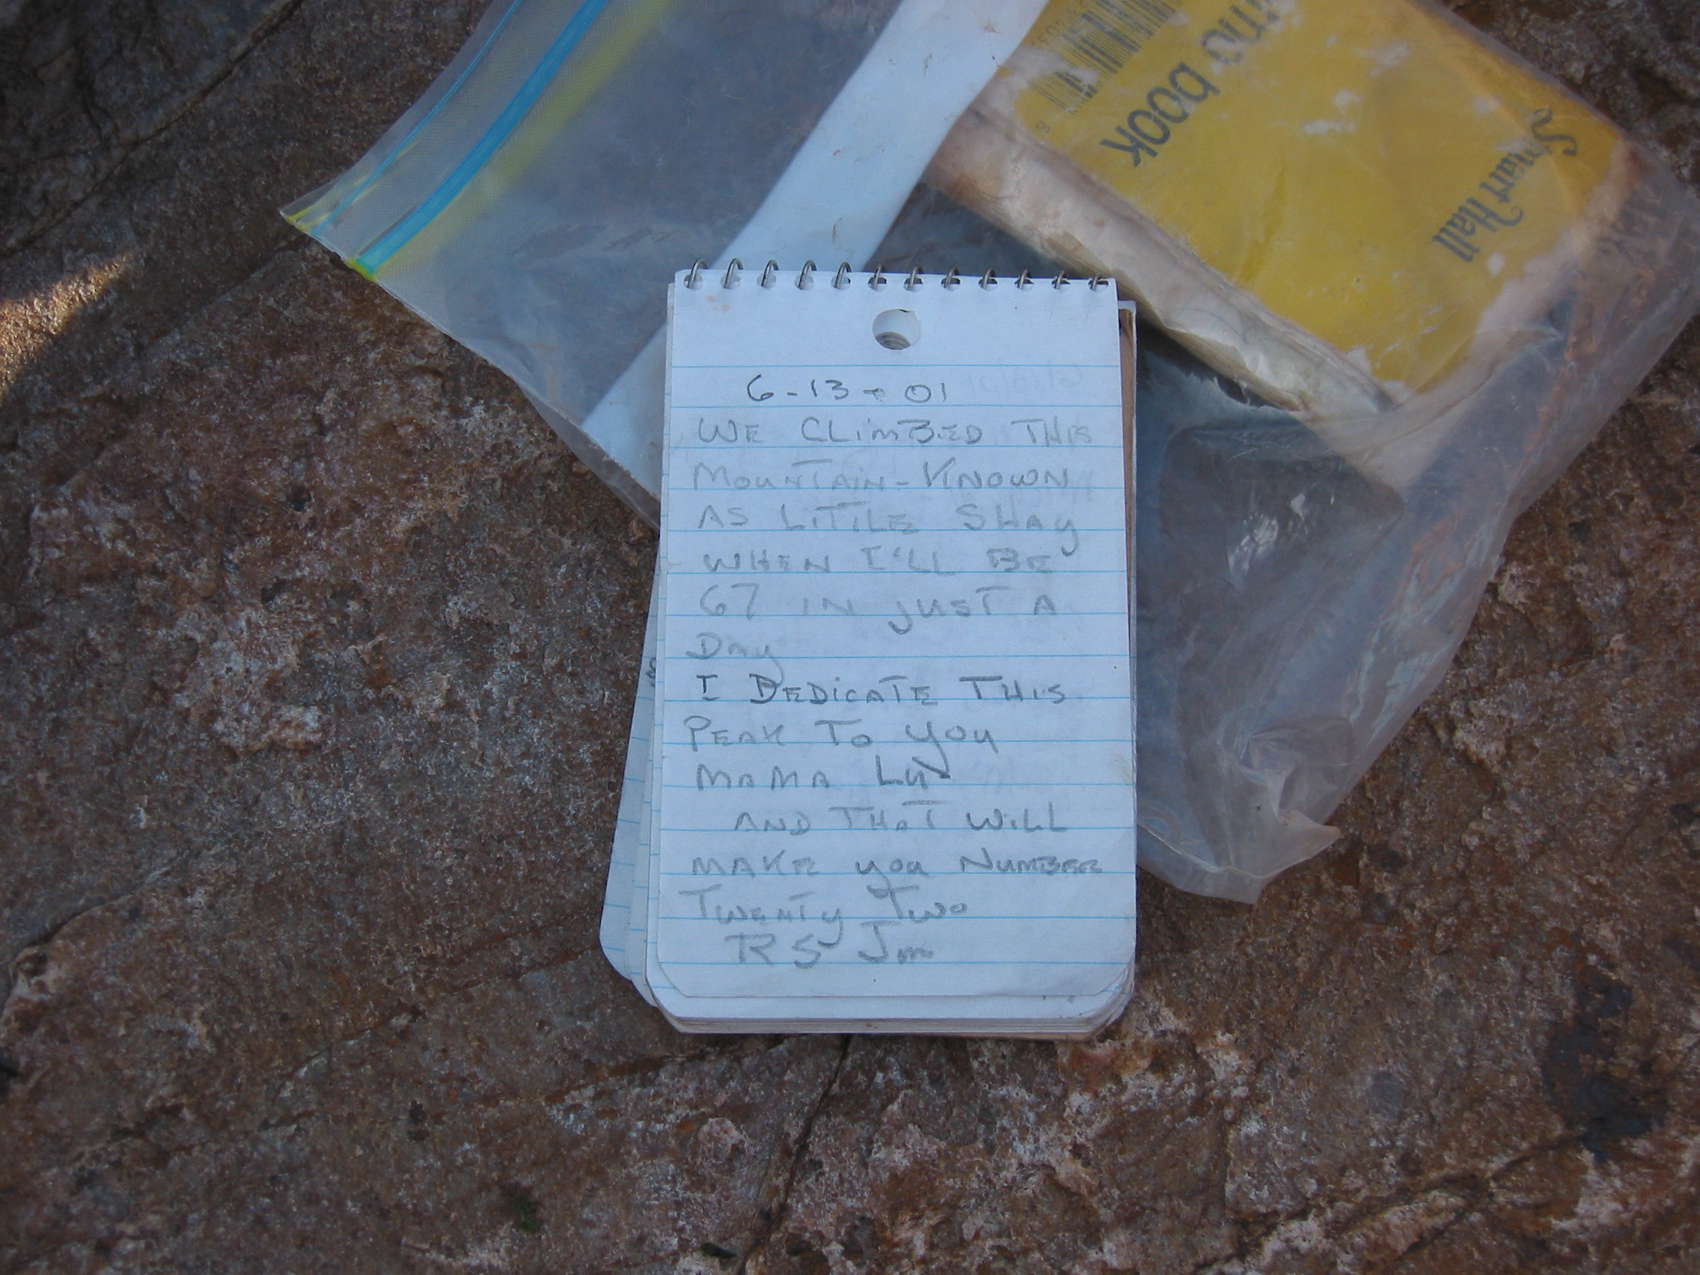 mo book
Smart Hall
6-13-01
WE CLIMBED THIS
MOUNTAIN-KNOWN
AS LITTLE SHAY
WHEN I'LL BE
67 IN JUST A
DAY
I DEDICATE THIS
PEAK TO YOU
MAMA LU
AND THAT WILL
MAKE YOU NUMBER
TWENTY TWO
RS Jm